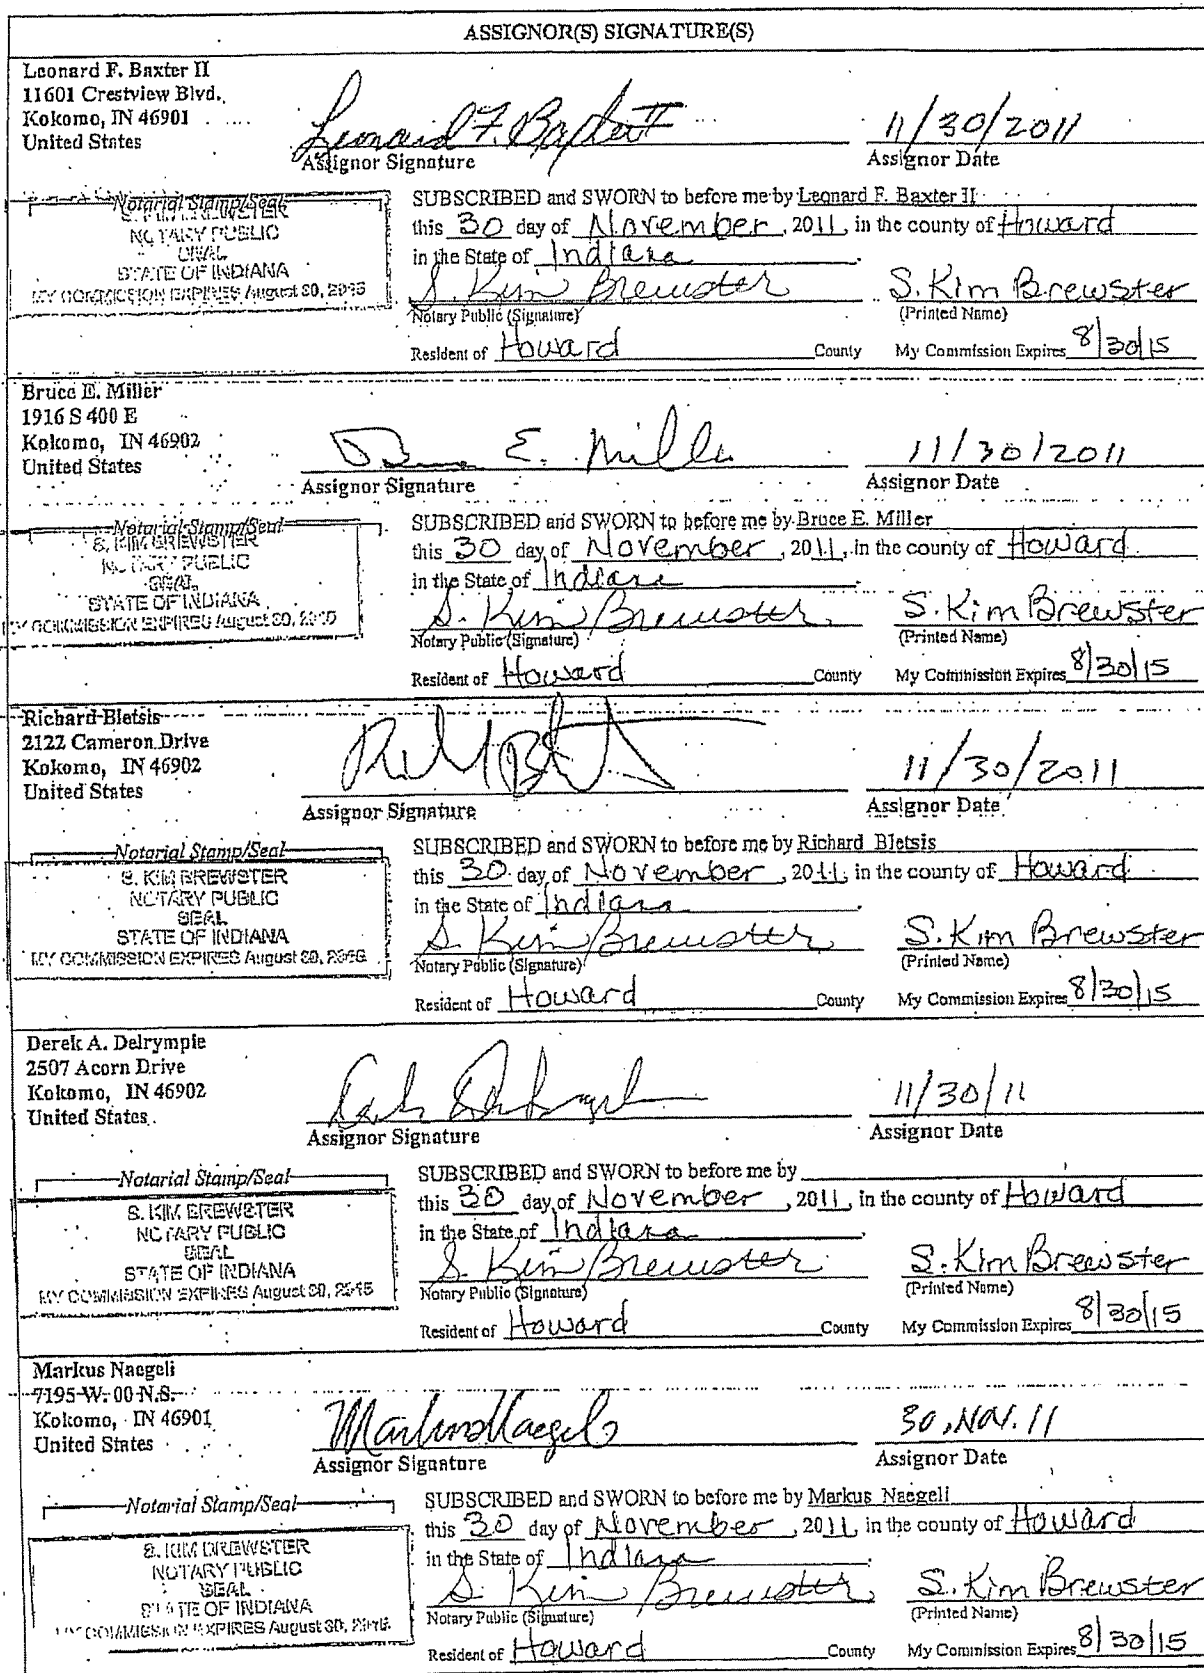 ASSIGNOR(S) SIGNATURE(S)
Leonard F. Baxter II
11601 Crestview Blvd.
Kokomo, IN 46901
United States
Leonard F. Baxter II 11/30/2011
Assignor Signature Assignor Date
Notarial Stamp/Seal
S. KIM BREWSTER
NOTARY PUBLIC
SEAL
STATE OF INDIANA
MY COMMISSION EXPIRES August 30, 2015
SUBSCRIBED and SWORN to before me by Leonard F. Baxter II
this 30 day of November, 2011, in the county of Howard
in the State of Indiana.
S. Kim Brewster S. Kim Brewster
Notary Public (Signature) (Printed Name)
Resident of Howard County My Commission Expires 8/30/15
Bruce E. Miller
1916 S 400 E
Kokomo, IN 46902
United States
E. Miller 11/30/2011
Assignor Signature Assignor Date
Notarial Stamp/Seal
S. KIM BREWSTER
NOTARY PUBLIC
SEAL
STATE OF INDIANA
MY COMMISSION EXPIRES August 30, 2015
SUBSCRIBED and SWORN to before me by Bruce E. Miller
this 30 day of November, 2011, in the county of Howard
in the State of Indiana.
S. Kim Brewster S. Kim Brewster
Notary Public (Signature) (Printed Name)
Resident of Howard County My Commission Expires 8/30/15
Richard Bletsis
2122 Cameron Drive
Kokomo, IN 46902
United States
11/30/2011
Assignor Signature Assignor Date
Notarial Stamp/Seal
S. KIM BREWSTER
NOTARY PUBLIC
SEAL
STATE OF INDIANA
MY COMMISSION EXPIRES August 30, 2015
SUBSCRIBED and SWORN to before me by Richard Bletsis
this 30 day of November, 2011, in the county of Howard
in the State of Indiana.
S. Kim Brewster S. Kim Brewster
Notary Public (Signature) (Printed Name)
Resident of Howard County My Commission Expires 8/30/15
Derek A. Delrymple
2507 Acorn Drive
Kokomo, IN 46902
United States
11/30/11
Assignor Signature Assignor Date
Notarial Stamp/Seal
S. KIM BREWSTER
NOTARY PUBLIC
SEAL
STATE OF INDIANA
MY COMMISSION EXPIRES August 30, 2015
SUBSCRIBED and SWORN to before me by
this 30 day of November, 2011, in the county of Howard
in the State of Indiana.
S. Kim Brewster S. Kim Brewster
Notary Public (Signature) (Printed Name)
Resident of Howard County My Commission Expires 8/30/15
Markus Naegeli
7195 W. 00 N.S.
Kokomo, IN 46901
United States
Markus Naegeli 30, NOV. 11
Assignor Signature Assignor Date
Notarial Stamp/Seal
S. KIM BREWSTER
NOTARY PUBLIC
SEAL
STATE OF INDIANA
MY COMMISSION EXPIRES August 30, 2015
SUBSCRIBED and SWORN to before me by Markus Naegeli
this 30 day of November, 2011, in the county of Howard
in the State of Indiana.
S. Kim Brewster S. Kim Brewster
Notary Public (Signature) (Printed Name)
Resident of Howard County My Commission Expires 8/30/15